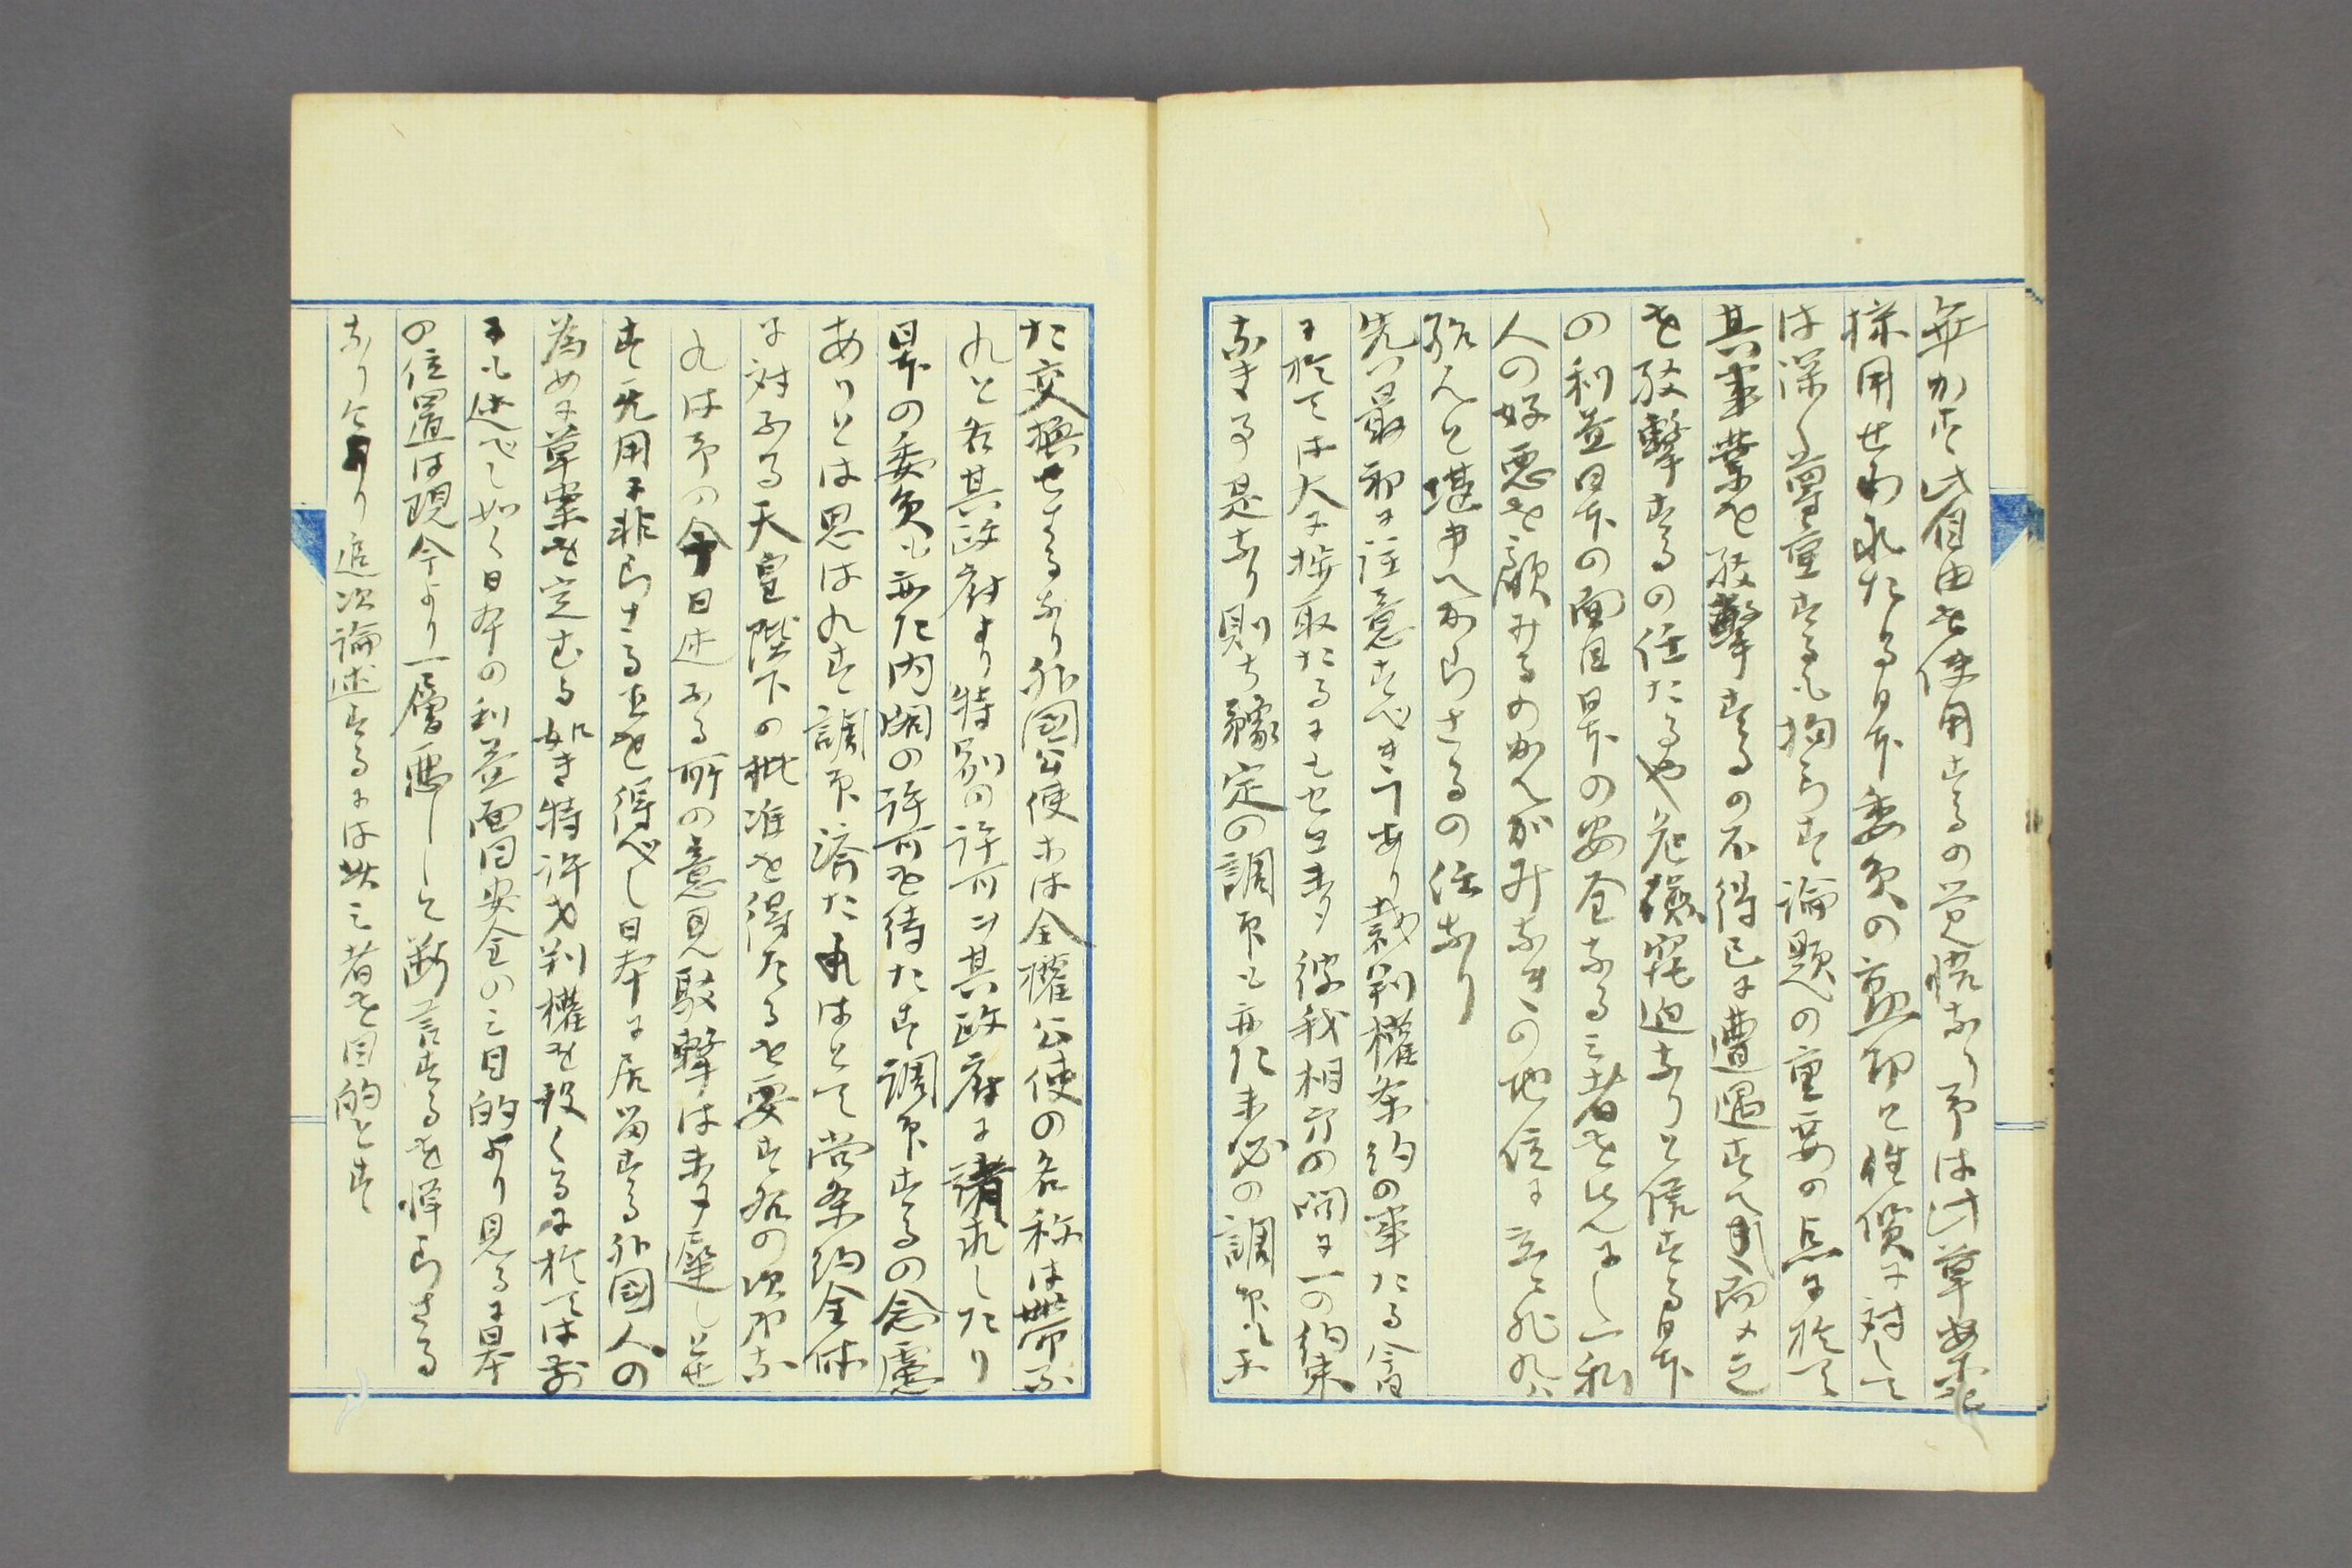 弁かす此自由を使用するの覚悟なり予は此草案を
採用せられたる日本委員の勲労と性質に対して
は深く尊重するも拘らす論題の重要の点に於て
其事業を駁撃するの不得已に遭遇すへく而〆之
を駁撃するの任たるや危険窘迫なりと信する日本
の利益日本の面目日本の安全なる三者を先にし一私
人の好悪を顧みるのかんがみなきの地位に立と雖
敢んと堪ゆへからさるの任なり
先つ最初に注意すべき一事あり裁判権条約の事たる会
に於ては大に捗取たるにもせよ未タ彼我相互の間に一の約束
なき事是なり則ち予定の調印も亦た未必の調印も
た交換せさるなり外国公使等は全権公使の名称は帯ふ
れと各其政府より特別の許可を其政府に請求したり
日本の委員も亦た内閣の許可を待たす調印するの念慮
ありとは思はれす調印済たれはとて尚条約全体
に対する天皇陛下の批准を得たるを要す右の次第な
れは予の今日述ふる所の意見駁撃は未タ遅しと
せす無用に非らさるを得べし日本に居留する外国人の
為めに草案を定むる如き特許裁判権を設くるに於ては前
にも述べし如く日本の利益面目安全の三目的より見るに日本
の位置は現今より一層悪しと断言するを憚らさる
なり今より追次論述するには此三者を目的とす